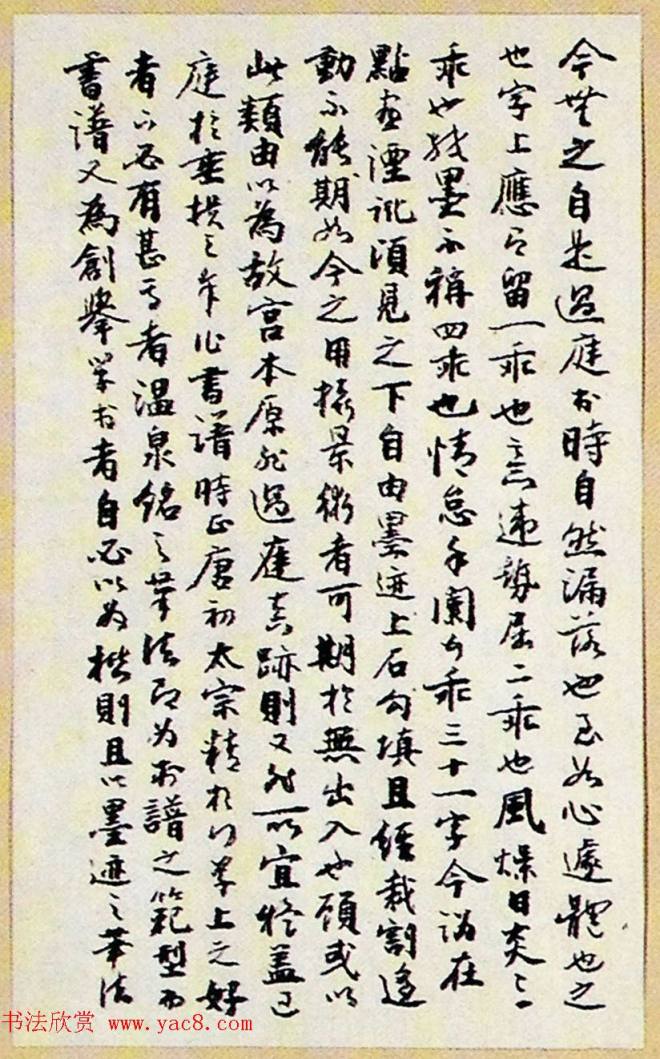 今無之自是過庭書時自然漏落也至如心遽體也之
也字上應有留一乖也意違勢屈二乖也風燥日炎三
乖也紙墨不稱四乖也情怠手闌五乖三十一字今誤在
點畫湮訛頃見之下自由墨迹上石勾填且經裁割逐
動不能期如今之用攝景術者可期於無出入也顧或以
此類由以為故宮本原非過庭真跡則又非所宜矣蓋
庭於垂拱之年作書譜時正唐初太宗精於行草上之好
者下必有甚焉者溫泉銘之筆法即為書譜之範型而
書譜又為創舉學書者自必以為楷則且以墨迹之筆法
书法欣赏 www.yac8.com